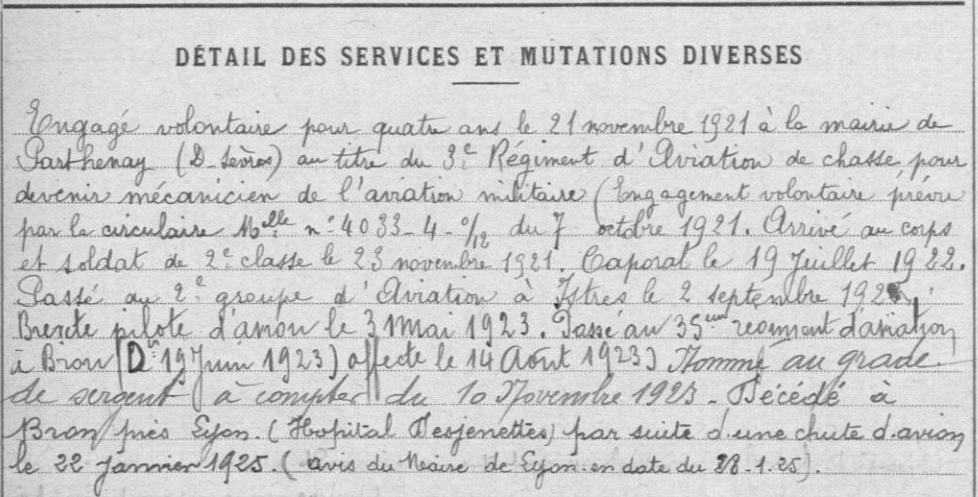 DÉTAIL DES SERVICES ET MUTATIONS DIVERSES
Engagé volontaire pour quatre ans le 21 novembre 1921 à la mairie de
Parthenay (D-Sèvres) au titre du 3e Régiment d'Aviation de chasse pour
devenir mécanicien de l'aviation militaire (Engagement volontaire prévu
par la circulaire Melle n° 4033-4-°/12 du 7 octobre 1921. Arrivé au corps
et soldat de 2e classe le 23 novembre 1921. Caporal le 19 Juillet 1922.
Passé au 2e groupe d'Aviation à Istres le 2 septembre 192
Breveté pilote d'avion le 3 Mai 1923. Passé au 35eme regiment d'aviation
à Bron (Dn 19 Juin 1923) affecté le 14 Août 1923) Nommé au grade
de sergent à compter du 10 Novembre 1923 - Décédé à
Bron près Lyon. (Hopital Desjenettes) par suite d'une chute d'avion
le 22 Janvier 1925. (avis du Maire de Lyon en date du 28-1-25).